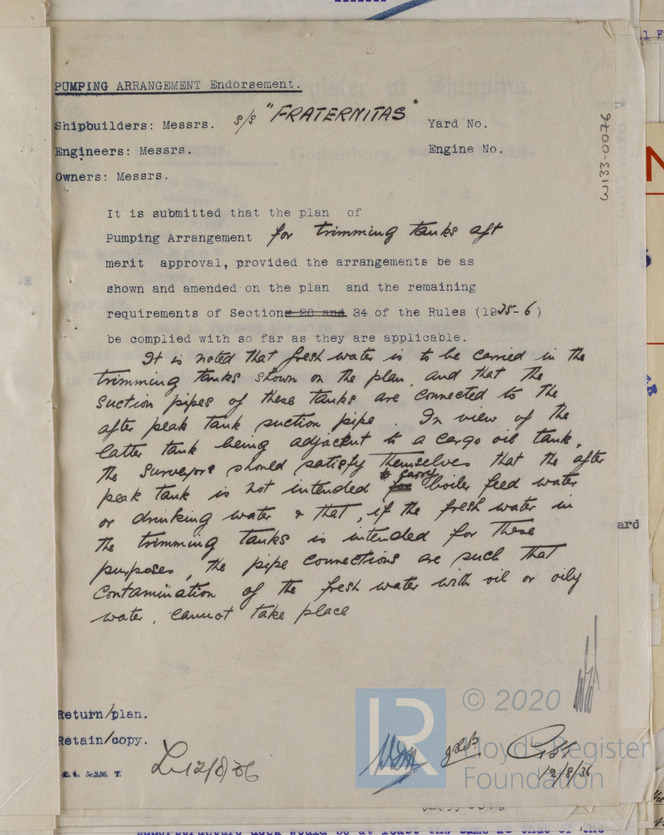 PUMPING ARRANGEMENT Endorsement.
s/s "FRATERNITAS"
Shipbuilders: Messrs. Yard No.
Engineers: Messrs. Engine No.
Owners: Messrs.
W133-0076
It is submitted that the plan of
Pumping Arrangement for trimming tanks aft
merit approval, provided the arrangements be as
shown and amended on the plan and the remaining
requirements of Sections 20 and 34 of the Rules (1935-6)
be complied with so far as they are applicable.
It is noted that fresh water is to be carried in the
trimming tanks shown on the plan, and that the
suction pipes of these tanks are connected to the
after peak tank suction pipe. In view of the
latter tank being adjacent to a cargo oil tank,
the Surveyors should satisfy themselves that the after
peak tank is not intended to carry boiler feed water
or drinking water & that, if the fresh water in
the trimming tanks is intended for these
purposes, the pipe connections are such that
contamination of the fresh water with oil or oily
water, cannot take place
ard
Return/plan.
Retain/copy.
L 12/8/36
12/8/36
LR © 2020
Lloyd's Register
Foundation